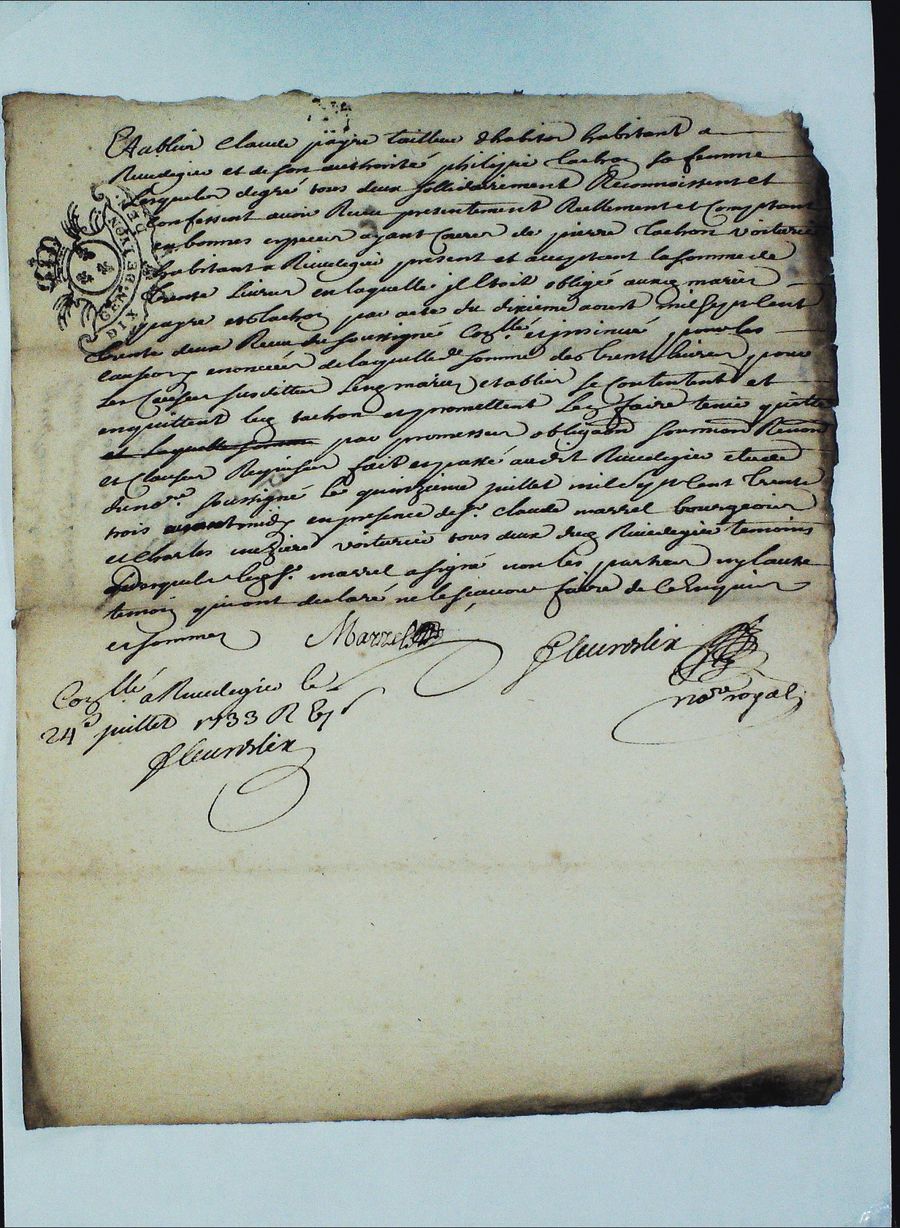 Etablis Claude payre tailleur d'habits habitant a
Ruedegie et de son authorité philippe tachon sa femme
Lesquels degré tous deux sollidairement Reconnoissent et
Confessent avoir Receu presentement Reellement et Comptant
en bonnes especes ayant Cours de pierre tachon voiturier
habitant a present et acceptant la somme de
trente Livres en laquelle il Etoit obligé auxd mariés
payre et tachon par acte du dixieme aoust mil sept Cent
trente deux Receu du soussigné et pour les
causes y enoncées de laquelled somme de trente livres pour
les Causes susdittes Lesd mariés etablis se Contentent et
en quittent led tachon et promettent Len faire tenir quitte
et Laquelle somme par promesses obligaon soumison Renon
et Clauses Requises fait et passé audit Ruedegie etude
du nore soussigné le quinzieme juillet mil sept Cent trente
trois avant midy en presence de sr Claude marrel bourgeois
et Charles voiturier tous deux dud Ruedegie temoins
desquels led sr marrel a signé non les parties ny lautre
temoin qui ont declaré ne le scavoir faire de ce Enquis
et sommés Marrel
Fleurdelix
nore royal
a Ruedegie le
24e juillet 1733 R
Fleurdelix
GEN DE LYON
DIX DEN.